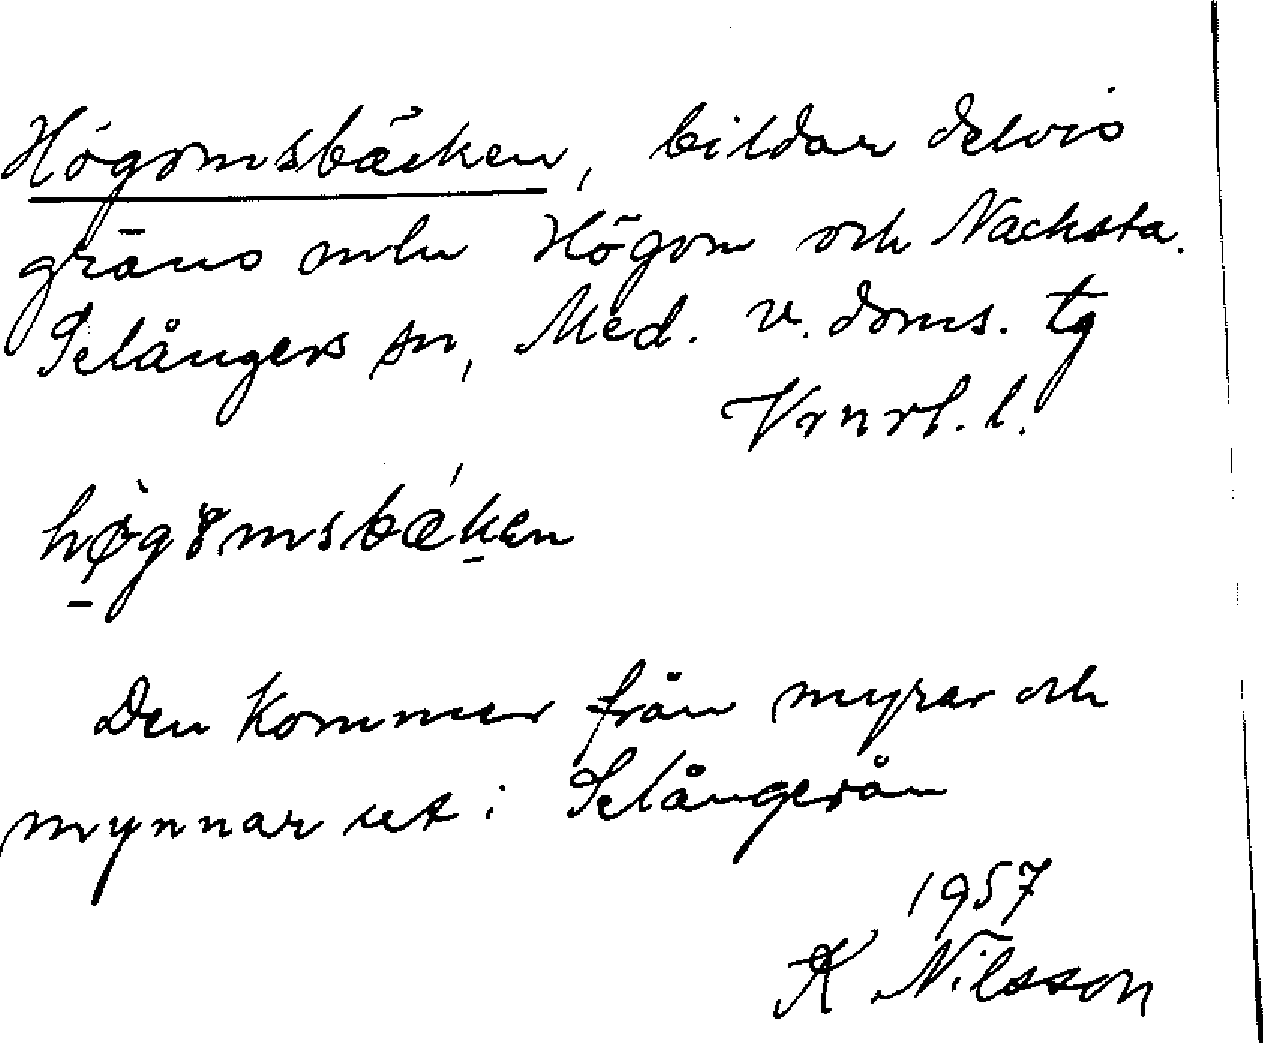 Högomsbäcken, bildar delvis
gräns mln Högom och Nacksta.
Selångers sn, Med. v. doms. tg
Vrnrl. l.
Den kommer från myrar och
mynnar ut i Selångerån
1957
K Nilsson